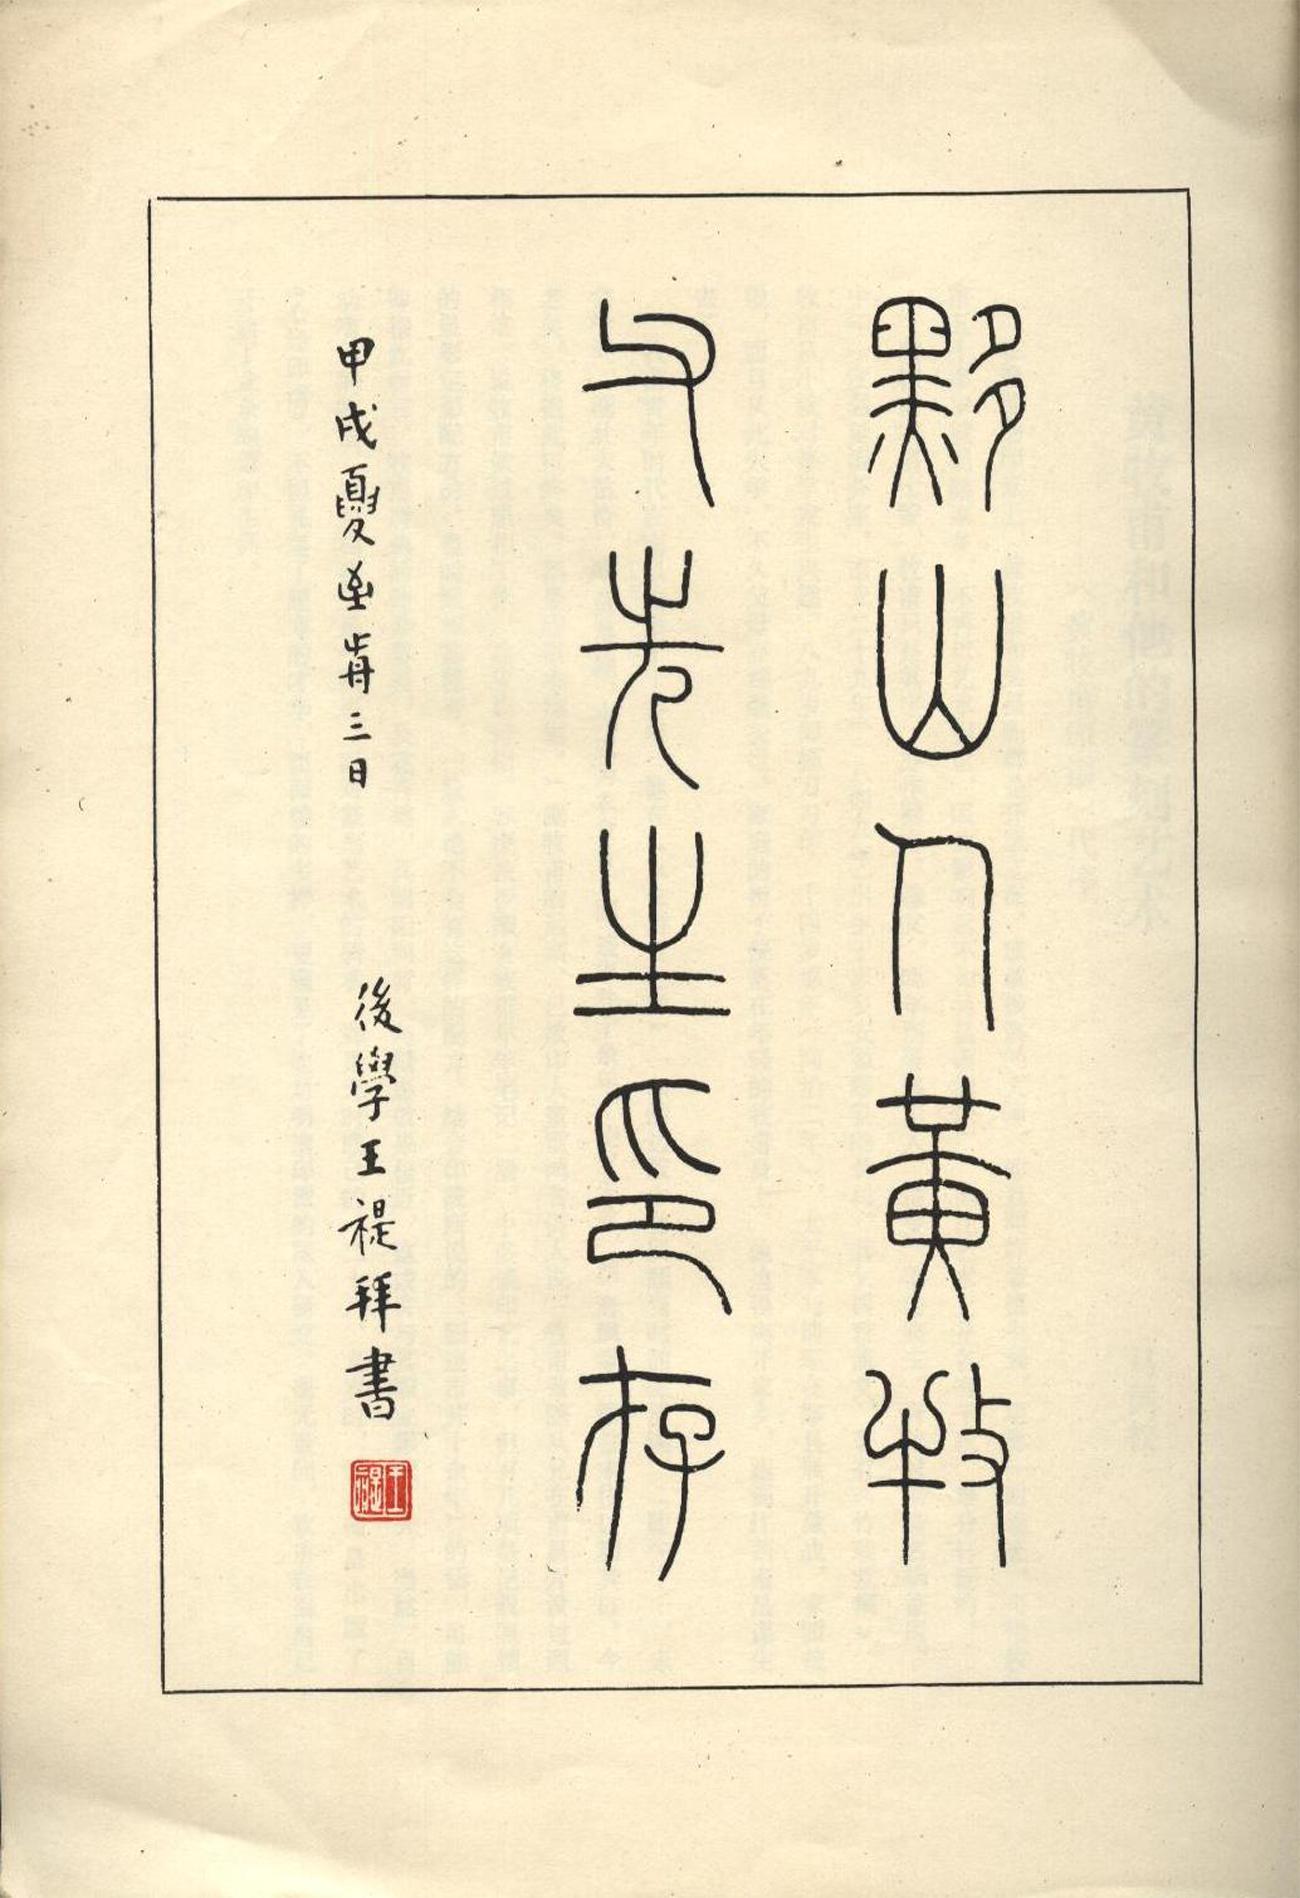 黟山人黃牧
父先生印存
甲戌夏至歬三日 後學王禔拜書
王禔